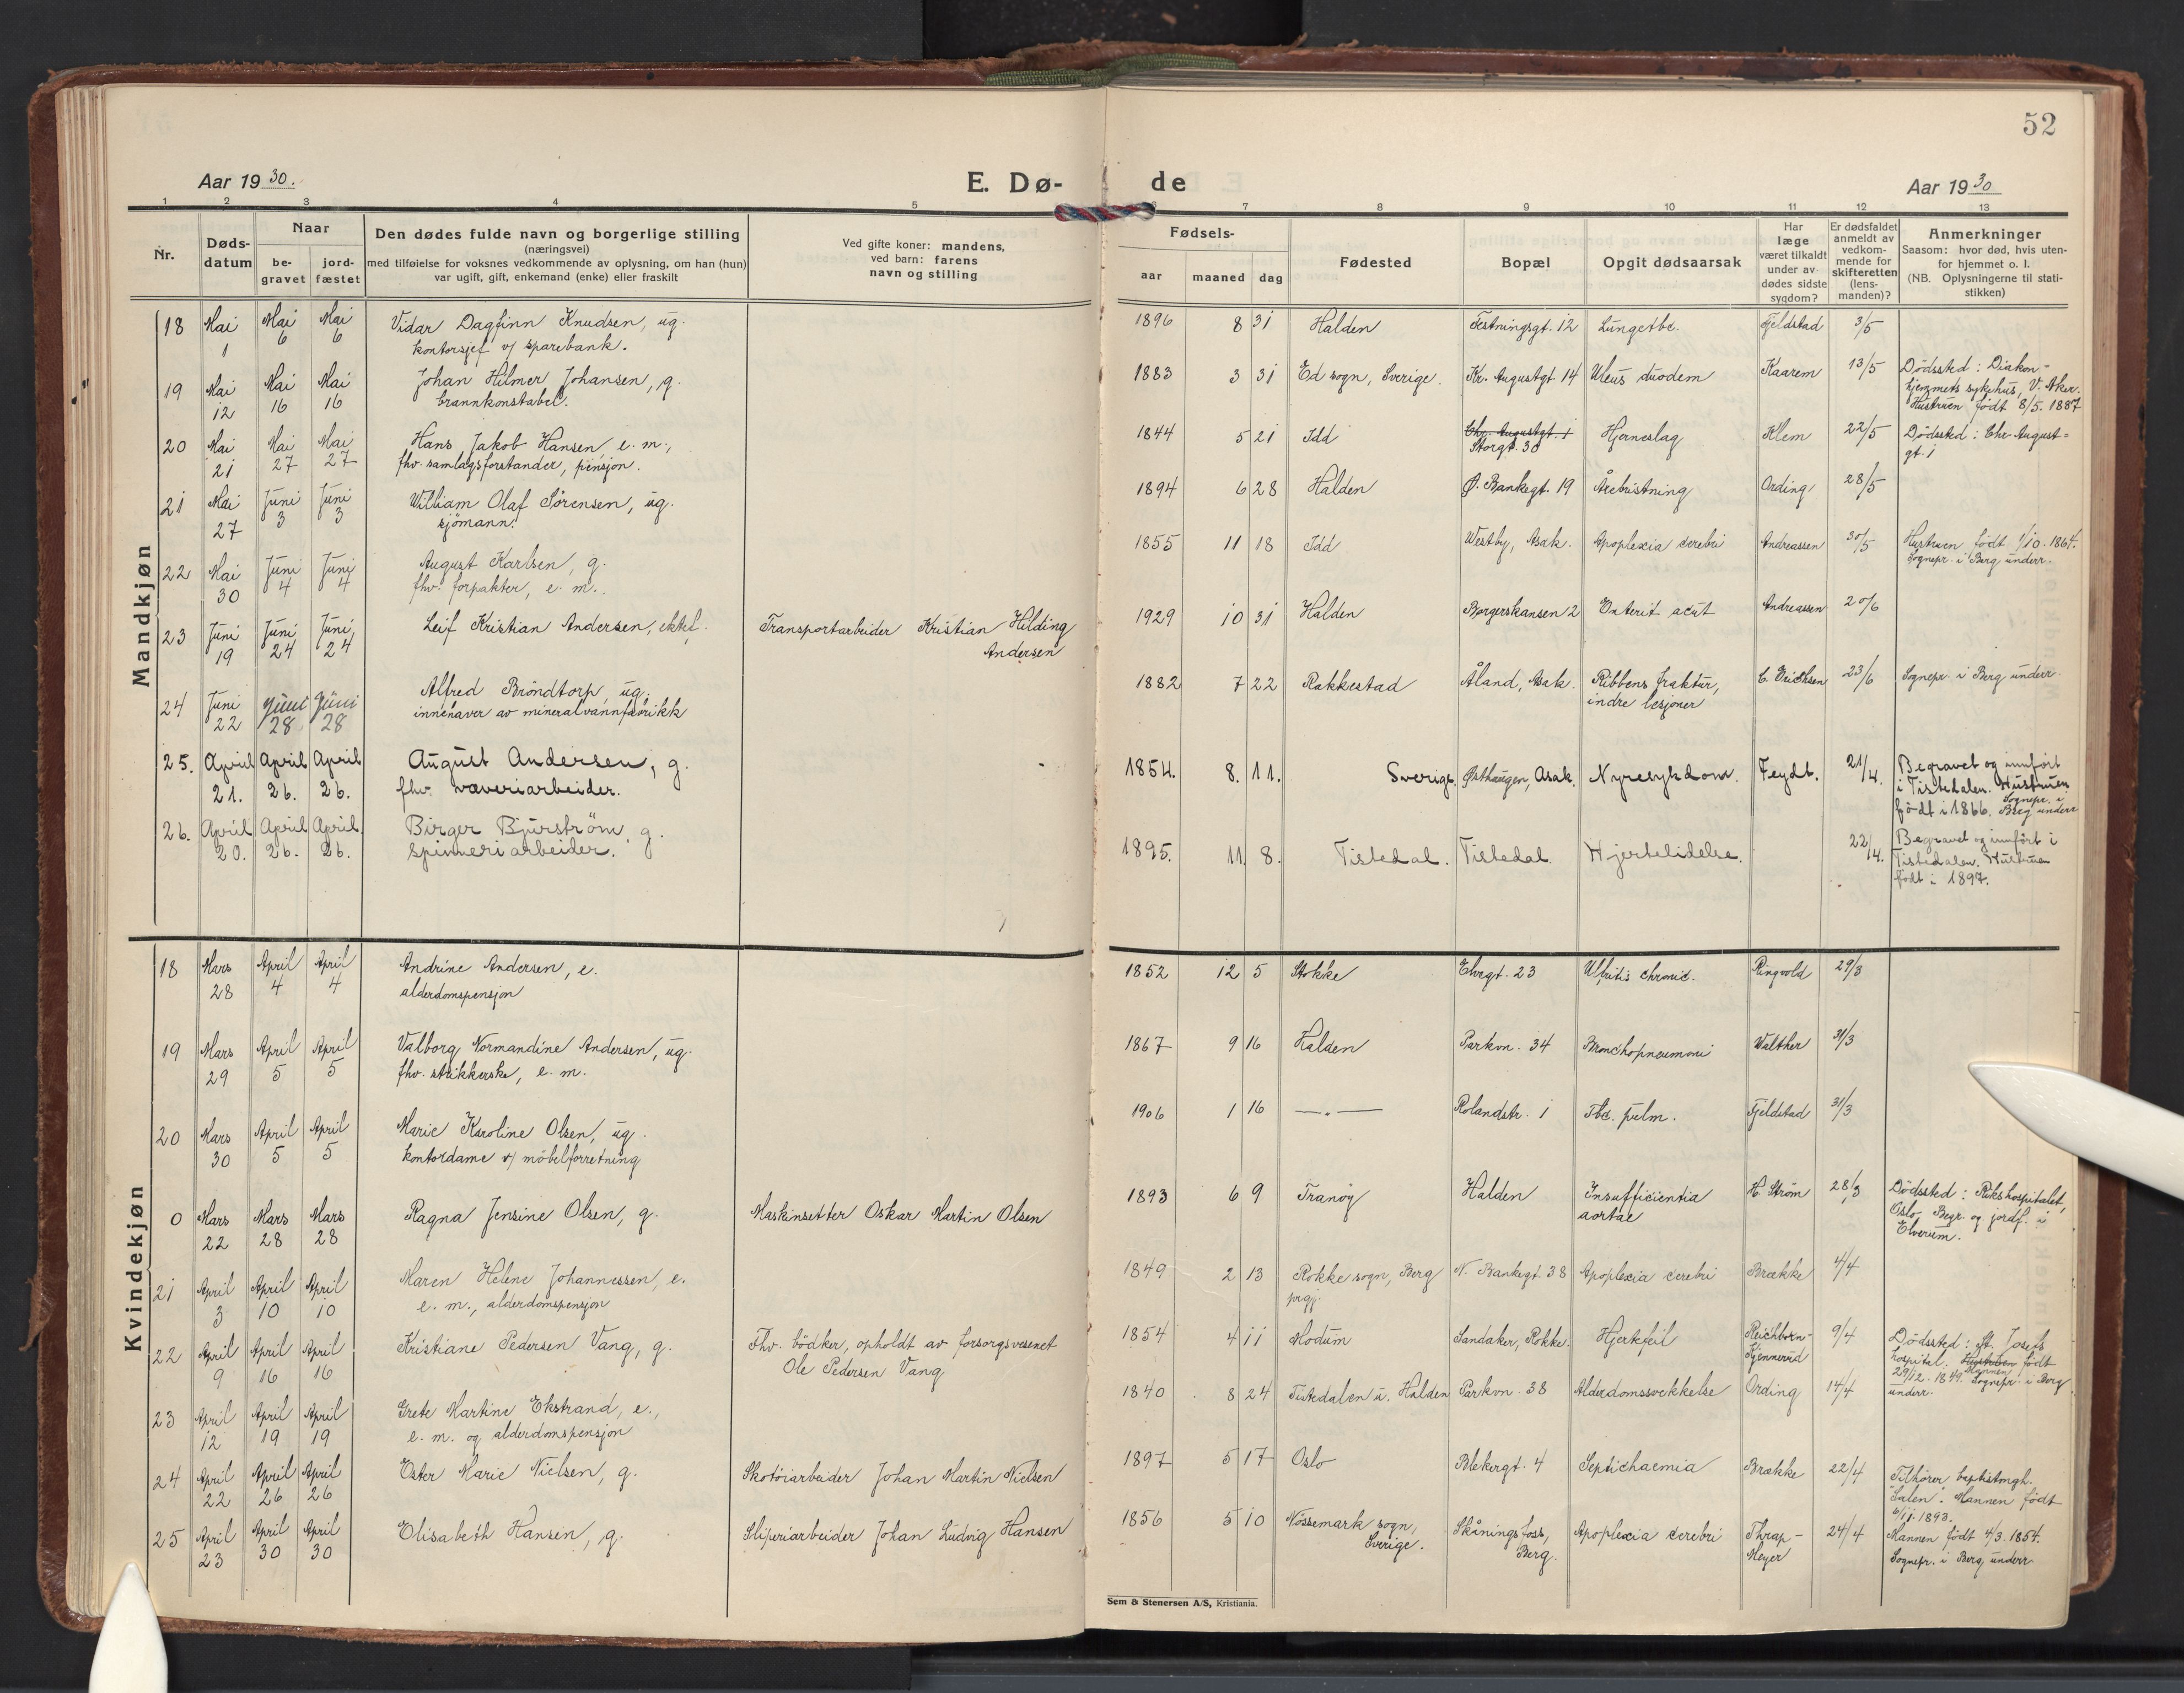 52
Aar 1930.
E. Dø-
de
Aar 1930
1 2 3 4 5 6 7 8 9 10 11 12 13
Nr.
Døds-
datum
Naar
be-
gravet
jord-
fæstet
Den dødes fulde navn og borgerlige stilling
(næringsvei)
med tilføielse for voksnes vedkommende av oplysning, om han (hun)
var ugift, gift, enkemand (enke) eller fraskilt
Ved gifte koner: mandens,
ved barn: farens
navn og stilling
Fødsels-
aar maaned dag
Fødested
Bopæl
Opgit dødsaarsak
Har
læge
været tilkaldt
under av-
dødes sidste
sygdom?
Er dødsfaldet
anmeldt av
vedkom-
mende for
skifteretten
(lens-
manden)?
Anmerkninger
Saasom: hvor død, hvis uten-
for hjemmet o. l.
(NB. Oplysningerne til stati-
stikken)
Mandkjøn
18 Mai Mai Mai Vidar Dagfinn Knudsen, ug. 1896 8 31 Halden Festningsgt. 12 Lungetbc. Fjeldstad 3/5
1 6 6 kontorsjef v/ sparebank.
19 Mai Mai Mai Johan Hilmer Johansen, g. 1883 3 31 Ed sogn, Sverige. Kr. Augustgt. 14 Ulcus duodem Kaarem 13/5 Dödssted: Diakon-
12 16 16 brannkonstabel. hjemmets sykehus, V. Aker.
Hustruen födt 8/5. 1887
20 Mai Mai Mai Hans Jakob Hansen, e. m., 1844 5 21 Idd Chr. Augustgt. 1 Hjerneslag Klem 22/5 Dödssted: Chr. August-
21 27 27 fhv. samlagsforstander, pensjon. Storgt. 30 gt. 1
21 Mai Juni Juni William Olaf Sörensen, ug. 1894 6 28 Halden Ø. Bankegt. 19 Årebristning Ording 28/5
27 3 3 sjömann.
22 Mai Juni Juni August Karlsen, g. 1855 11 18 Idd Westby, Asak. Apoplexia cerebri Andreassen 30/5 Hustruen födt 1/10. 1864.
30 4 4 fhv. forpakter, e. m. Sognepr. i Berg underr.
23 Juni Juni Juni Leif Kristian Andersen, ektef. Transportarbeider Kristian Hilding 1929 10 31 Halden Borgerskansen 2 Enterit acut Andreassen 20/6
19 24 24 Andersen
24 Juni Juni Juni Alfred Bröndtorp, ug. 1882 7 22 Rakkestad Åland, Asak. Ribbens fraktur, C. Erichsen 23/6 Sognepr. i Berg underr.
22 28 28 innehaver av mineralvannfabrikk indre lesjoner
25. April April April August Andersen, g. 1854. 8. 11. Sverige. Østhaugen, Asak. Nyresykdom. Feydt. 21/4. Begravet og innfört
21. 26. 26. fhv. væveriarbeider. i Tistedalen. Hustruen
födt i 1866. Sognepr. i Berg underr
26. April April April. Birger Bjurström, g. 1895. 11. 8. Tistedal. Tistedal. Hjertelidelse. 22/4. Begravet og innfört i
20. 26. 26. Spinneriarbeider. Tistedalen. Hustruen
födt i 1897.
Kvindekjøn
18 Mars April April Andrine Andersen, e. 1852 12 5 Stokke Elvegt. 23 chronic. Ringvold 29/3
28 4 4 alderdomspensjon
19 Mars April April Valborg Normandine Andersen, ug. 1867 9 16 Halden Parkvn. 34 Bronchopneumoni Walther 31/3
29 5 5 fhv. strikkerske, e. m.
20 Mars April April Marie Karoline Olsen, ug. 1906 1 16 —.— Rolandstr. 1 Tbc. pulm. Fjeldstad 31/3
30 5 5 kontordame v/ möbelforretning
0 Mars Mars Mars Ragna Jensine Olsen, g. Maskinsetter Oskar Martin Olsen 1893 6 9 Tranöy Halden Insufficientia H. Ström 28/3 Dödssted: Rikshospitalet,
22 28 28 aortae Oslo. Begr. og jordf. i
Elverum.
21 April April April Maren Helene Johannessen, e. 1849 2 13 Rokke sogn, Berg N. Bankegt. 38 Apoplexia cerebri Brække 4/4
3 10 10 e. m., alderdomspensjon prgj.
22 April April April Kristiane Pedersen Vang, g. Fhv. bödker, opholdt av forsorgsvesenet 1854 4 11 Modum Sandaker, Rokke. Hjertefeil Reichborn- 9/4 Dödssted: St. Josefs
9 16 16 Ole Pedersen Vang Kjennerud hospital. Hustruen Mannen födt
29/12. 1849. Sognepr. i Berg
underr.
23 April April April Grete Martine Ekstrand, e., 1840 8 24 Tistedalen u. Halden Parkvn. 38 Alderdomssvekkelse Ording 14/4
12 19 19 e. m. og alderdomspensjon
24 April April April Ester Marie Nielsen, g. Skotöiarbeider Johan Martin Nielsen 1897 5 17 Oslo Blekergt. 4 Septichaemia Brække 22/4 Tilhörer baptistmgh.
22 26 26 "Salen". Mannen födt
6/11. 1893.
25 April April April Elisabeth Hansen, g. Sliperiarbeider Johan Ludvig Hansen 1856 5 10 Nössemark sogn, Skåningsfoss, Apoplexia cerebri Thrap- 24/4 Mannen födt 4/3. 1854.
23 30 30 Sverige. Berg. Meyer Sognepr. i Berg underr.
Sem & Stenersen A/S, Kristiania.